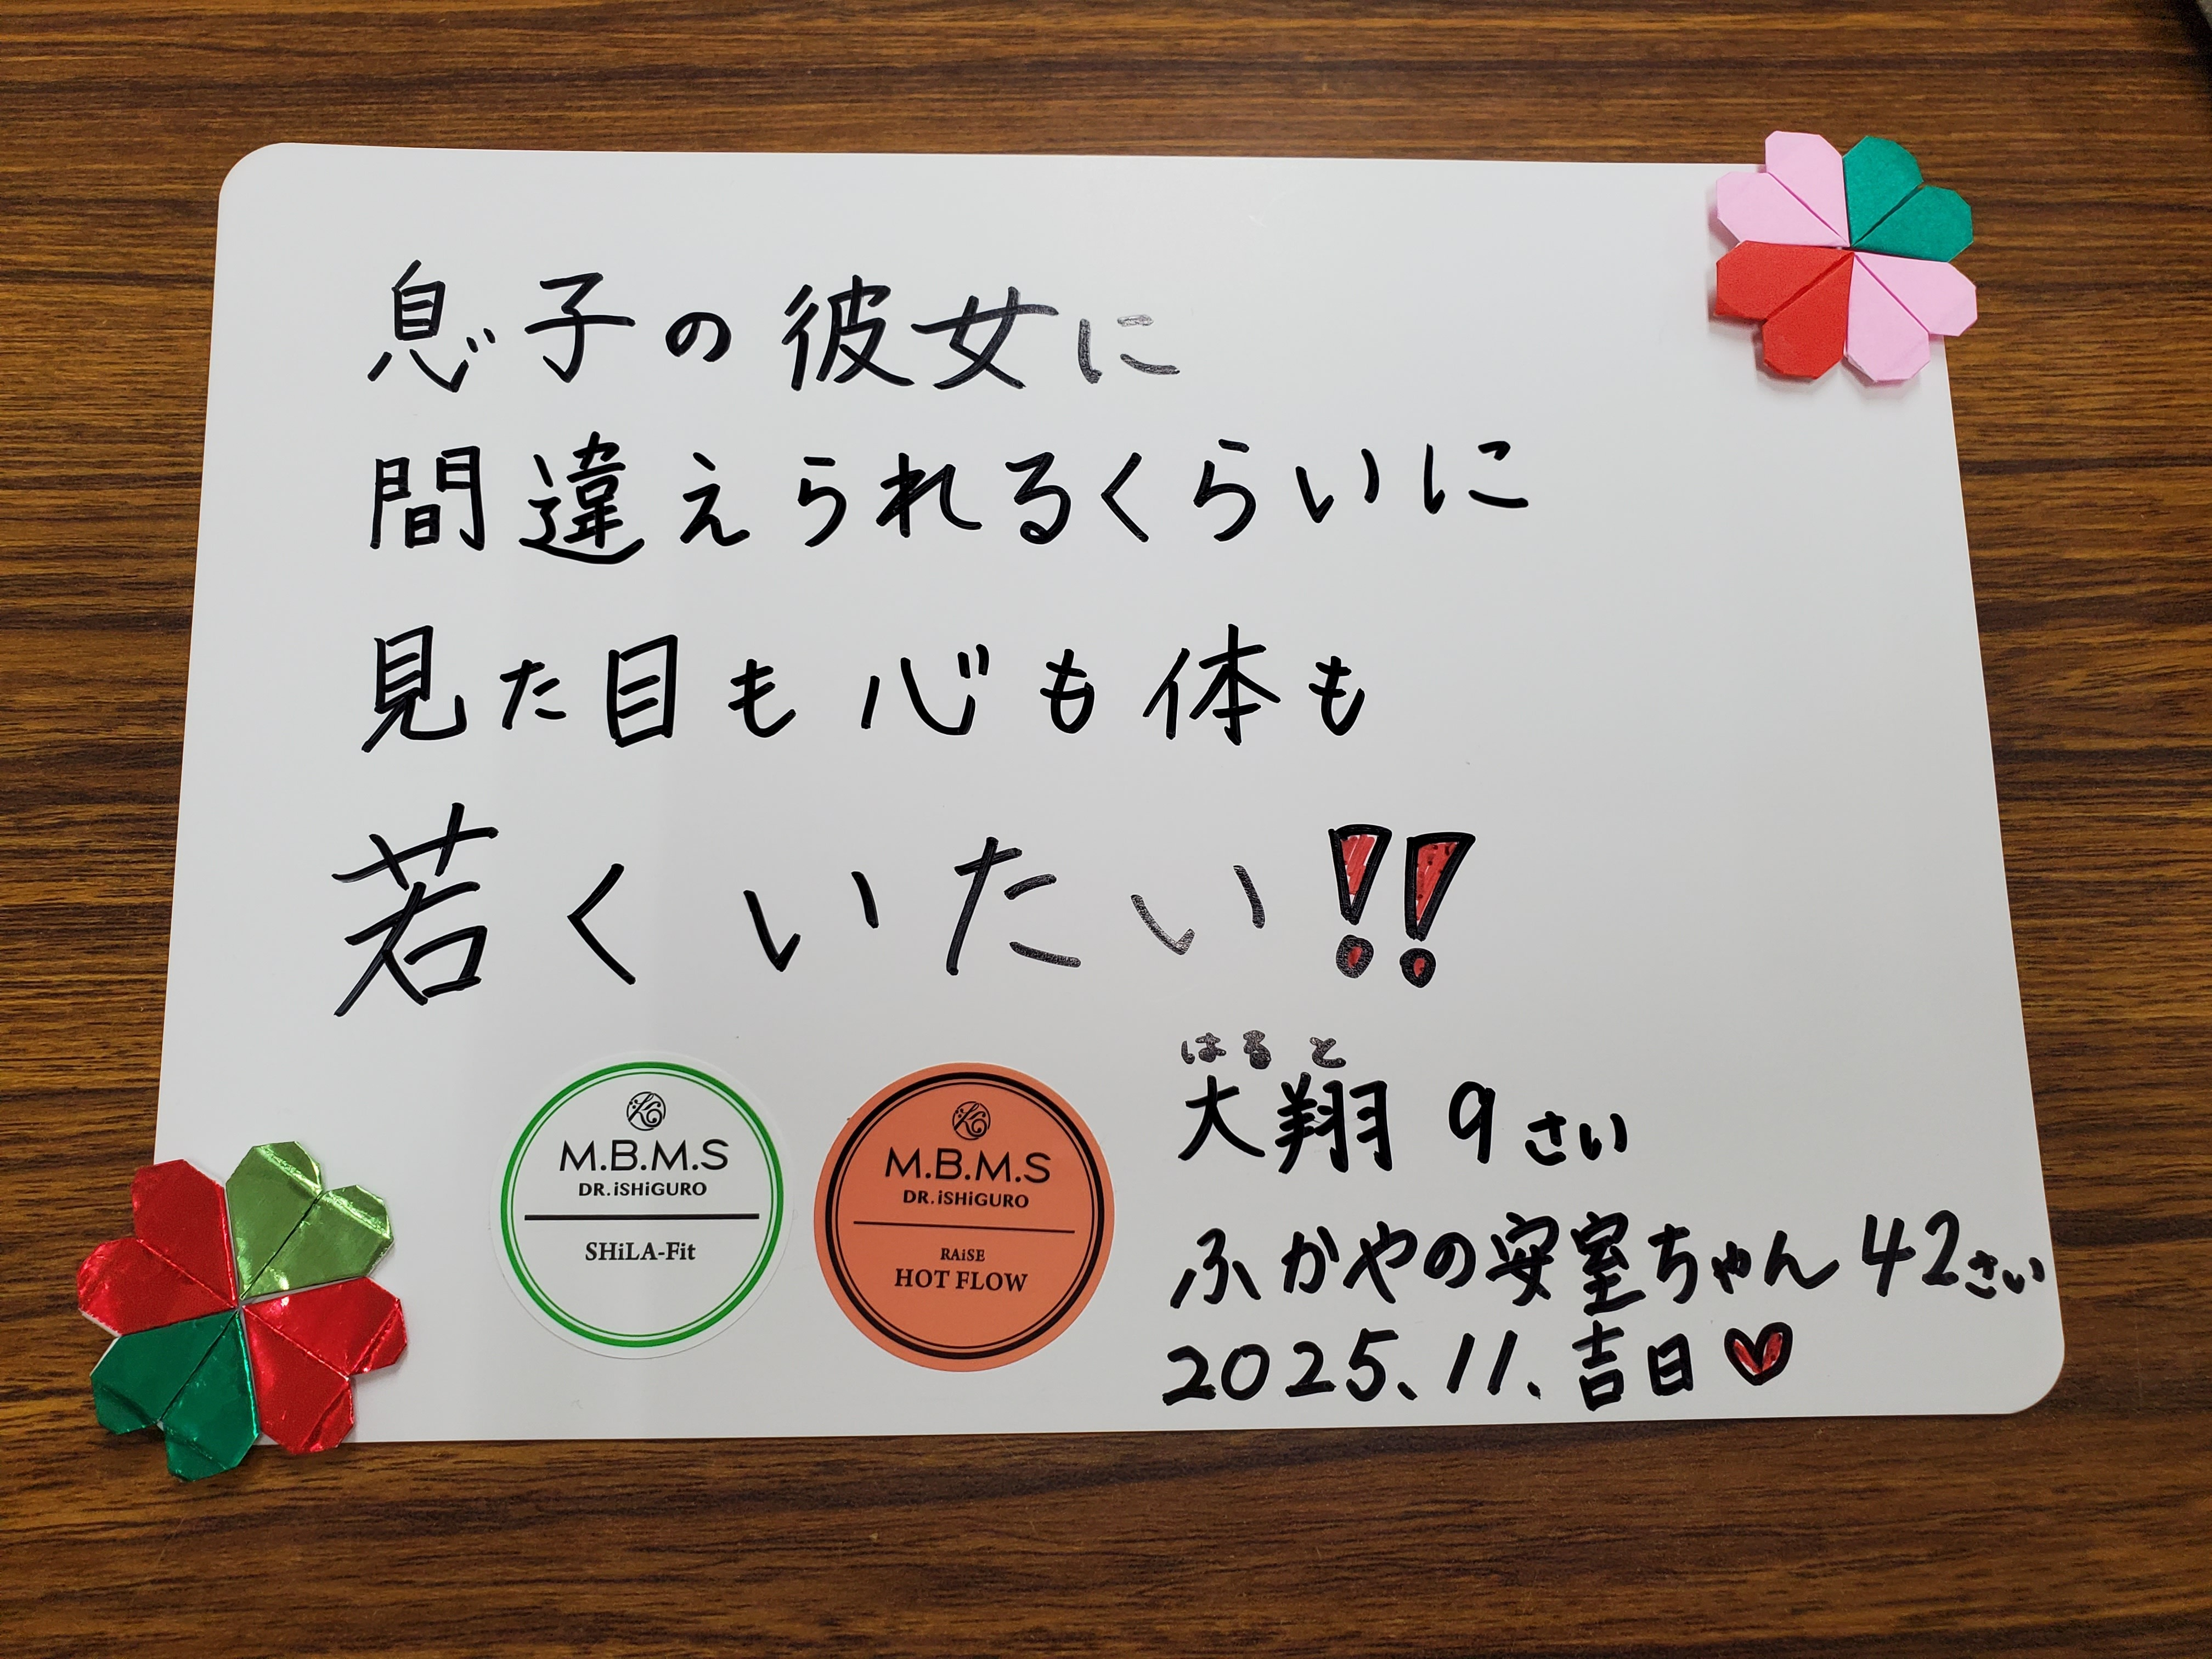 息子の彼女に
間違えられるくらいに
見た目も心も体も
若くいたい!!
はると
大翔 9さい
ふかやの安室ちゃん 42さい
2025.11.吉日♡
M.B.M.S
DR.iSHiGURO
SHiLA-Fit
M.B.M.S
DR.iSHiGURO
RAiSE
HOT FLOW